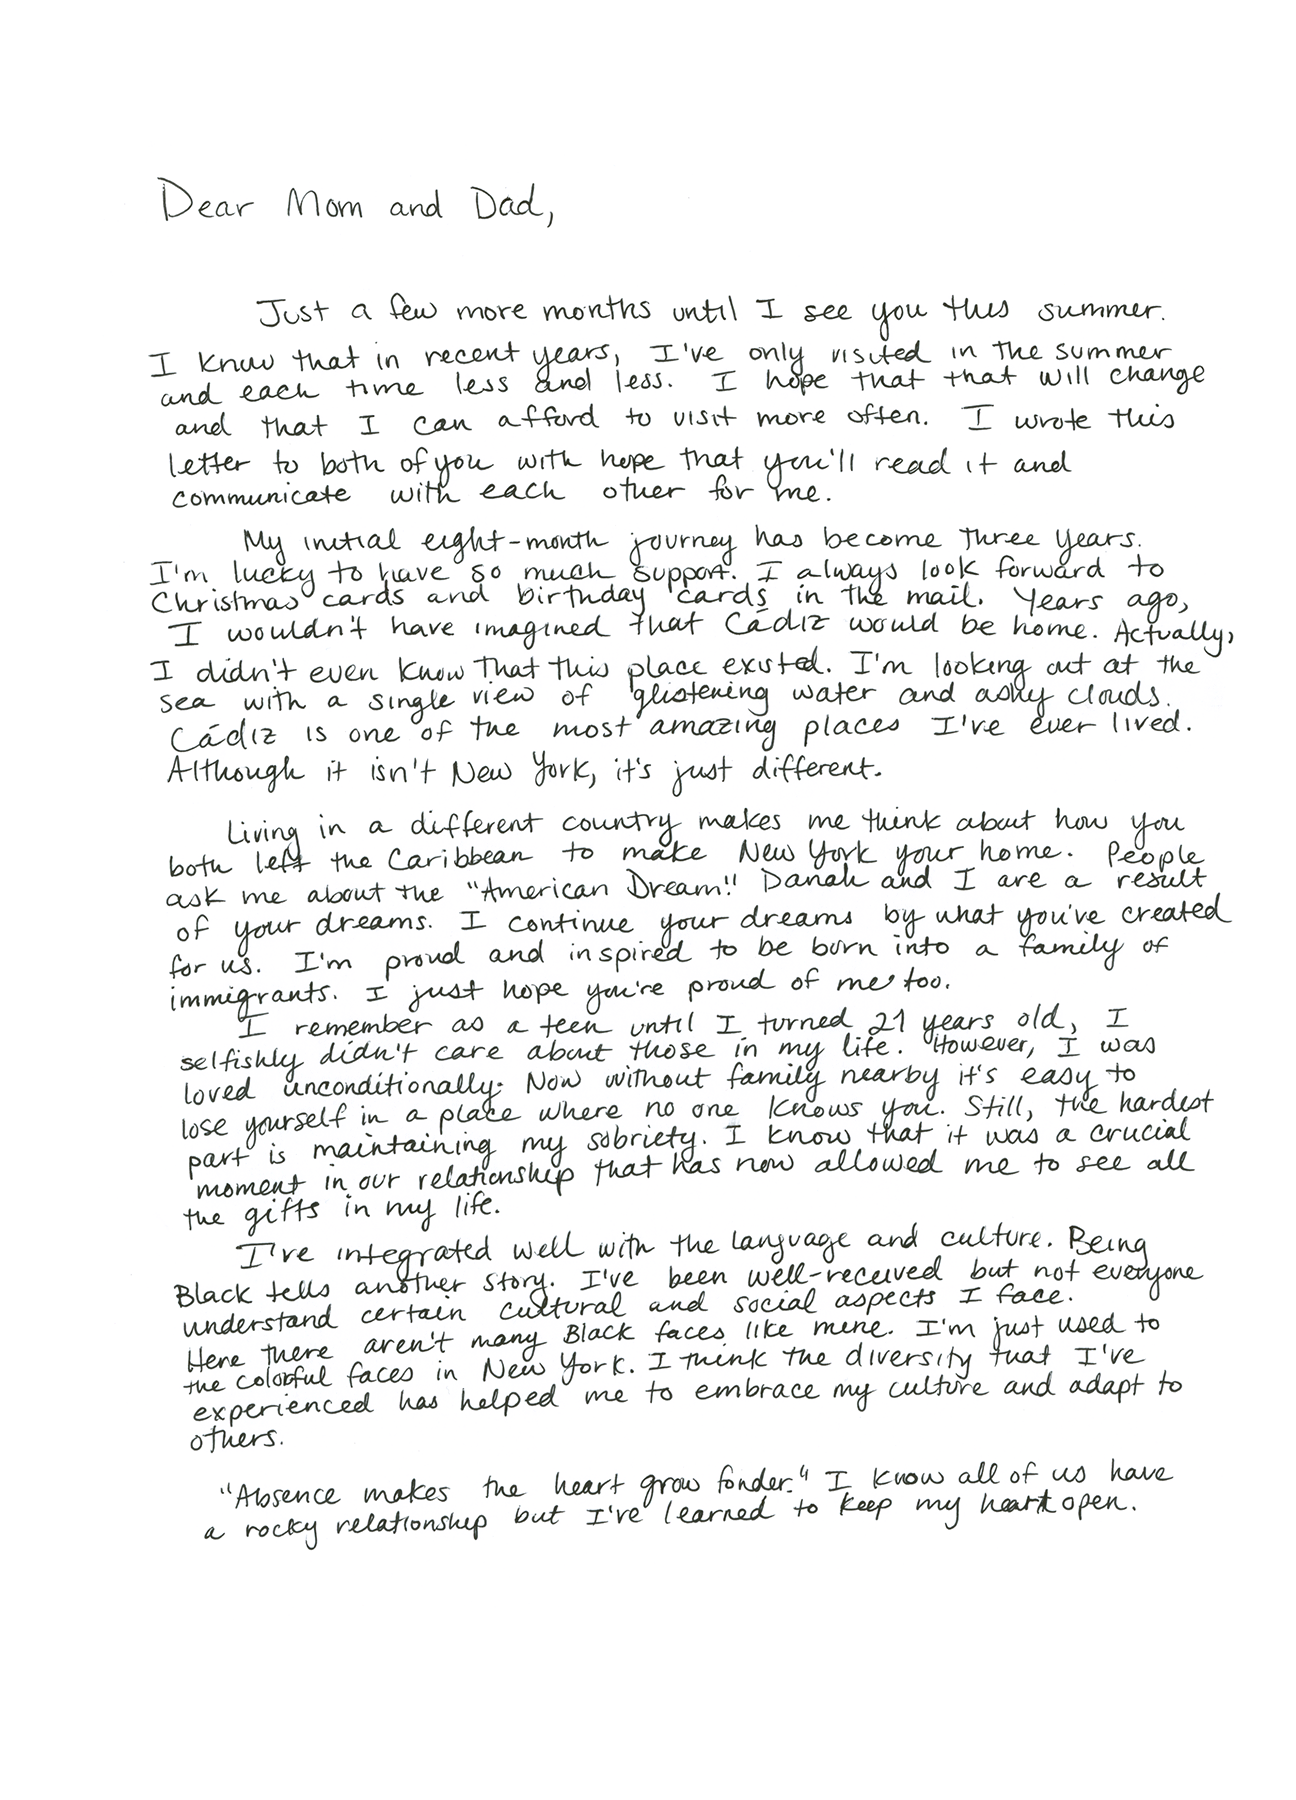 Dear Mom and Dad,
Just a few more months until I see you this summer.
I know that in recent years, I've only visited in the summer
and each time less and less. I hope that that will change
and that I can afford to visit more often. I wrote this
letter to both of you with hope that you'll read it and
communicate with each other for me.
My initial eight-month journey has become three years.
I'm lucky to have so much support. I always look forward to
Christmas cards and birthday cards in the mail. Years ago,
I wouldn't have imagined that Cádiz would be home. Actually,
I didn't even know that this place existed. I'm looking out at the
sea with a single view of glistening water and ashy clouds.
Cádiz is one of the most amazing places I've ever lived.
Although it isn't New York, it's just different.
Living in a different country makes me think about how you
both left the Caribbean to make New York your home. People
ask me about the "American Dream." Danah and I are a result
of your dreams. I continue your dreams by what you've created
for us. I'm proud and inspired to be born into a family of
immigrants. I just hope you're proud of me too.
I remember as a teen until I turned 21 years old, I
selfishly didn't care about those in my life. However, I was
loved unconditionally. Now without family nearby it's easy to
lose yourself in a place where no one knows you. Still, the hardest
part is maintaining my sobriety. I know that it was a crucial
moment in our relationship that has now allowed me to see all
the gifts in my life.
I've integrated well with the language and culture. Being
Black tells another story. I've been well-received but not everyone
understand certain cultural and social aspects I face.
Here there aren't many Black faces like mine. I'm just used to
the colorful faces in New York. I think the diversity that I've
experienced has helped me to embrace my culture and adapt to
others.
"Absence makes the heart grow fonder." I know all of us have
a rocky relationship but I've learned to keep my heart open.